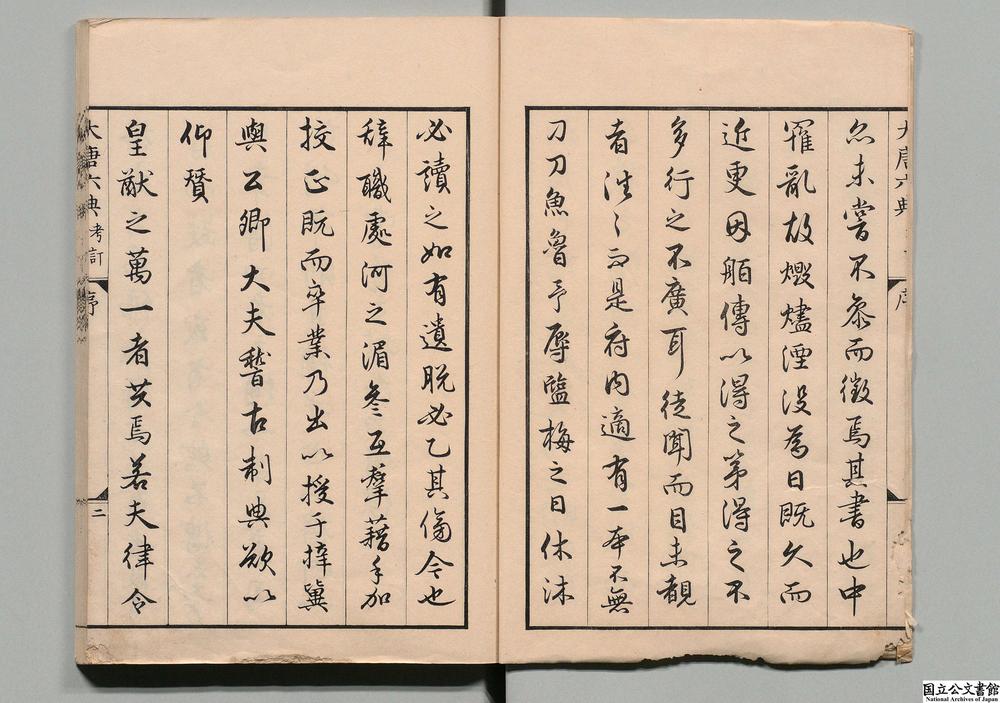 大唐六典
序
尒未嘗不柰而徵焉其書也中
罹亂故燬燼湮没為日既久而
近更因舶傳以得之第得之不
多行之不廣耳徒聞而目未覩
者注〻而是府内適有一本不無
刀刀魚魯予辱盬梅之日休沐
必讀之如有遺脱必乙其傷今也
辞職處河之湄叅互羣藉手加
挍正既而卒業乃出以授于梓冀
與公卿大夫稽古制典欲以
仰賛
皇猷之萬一者共焉若夫律令
大唐六典考訂
序
二
国立公文書館
National Archives of Japan